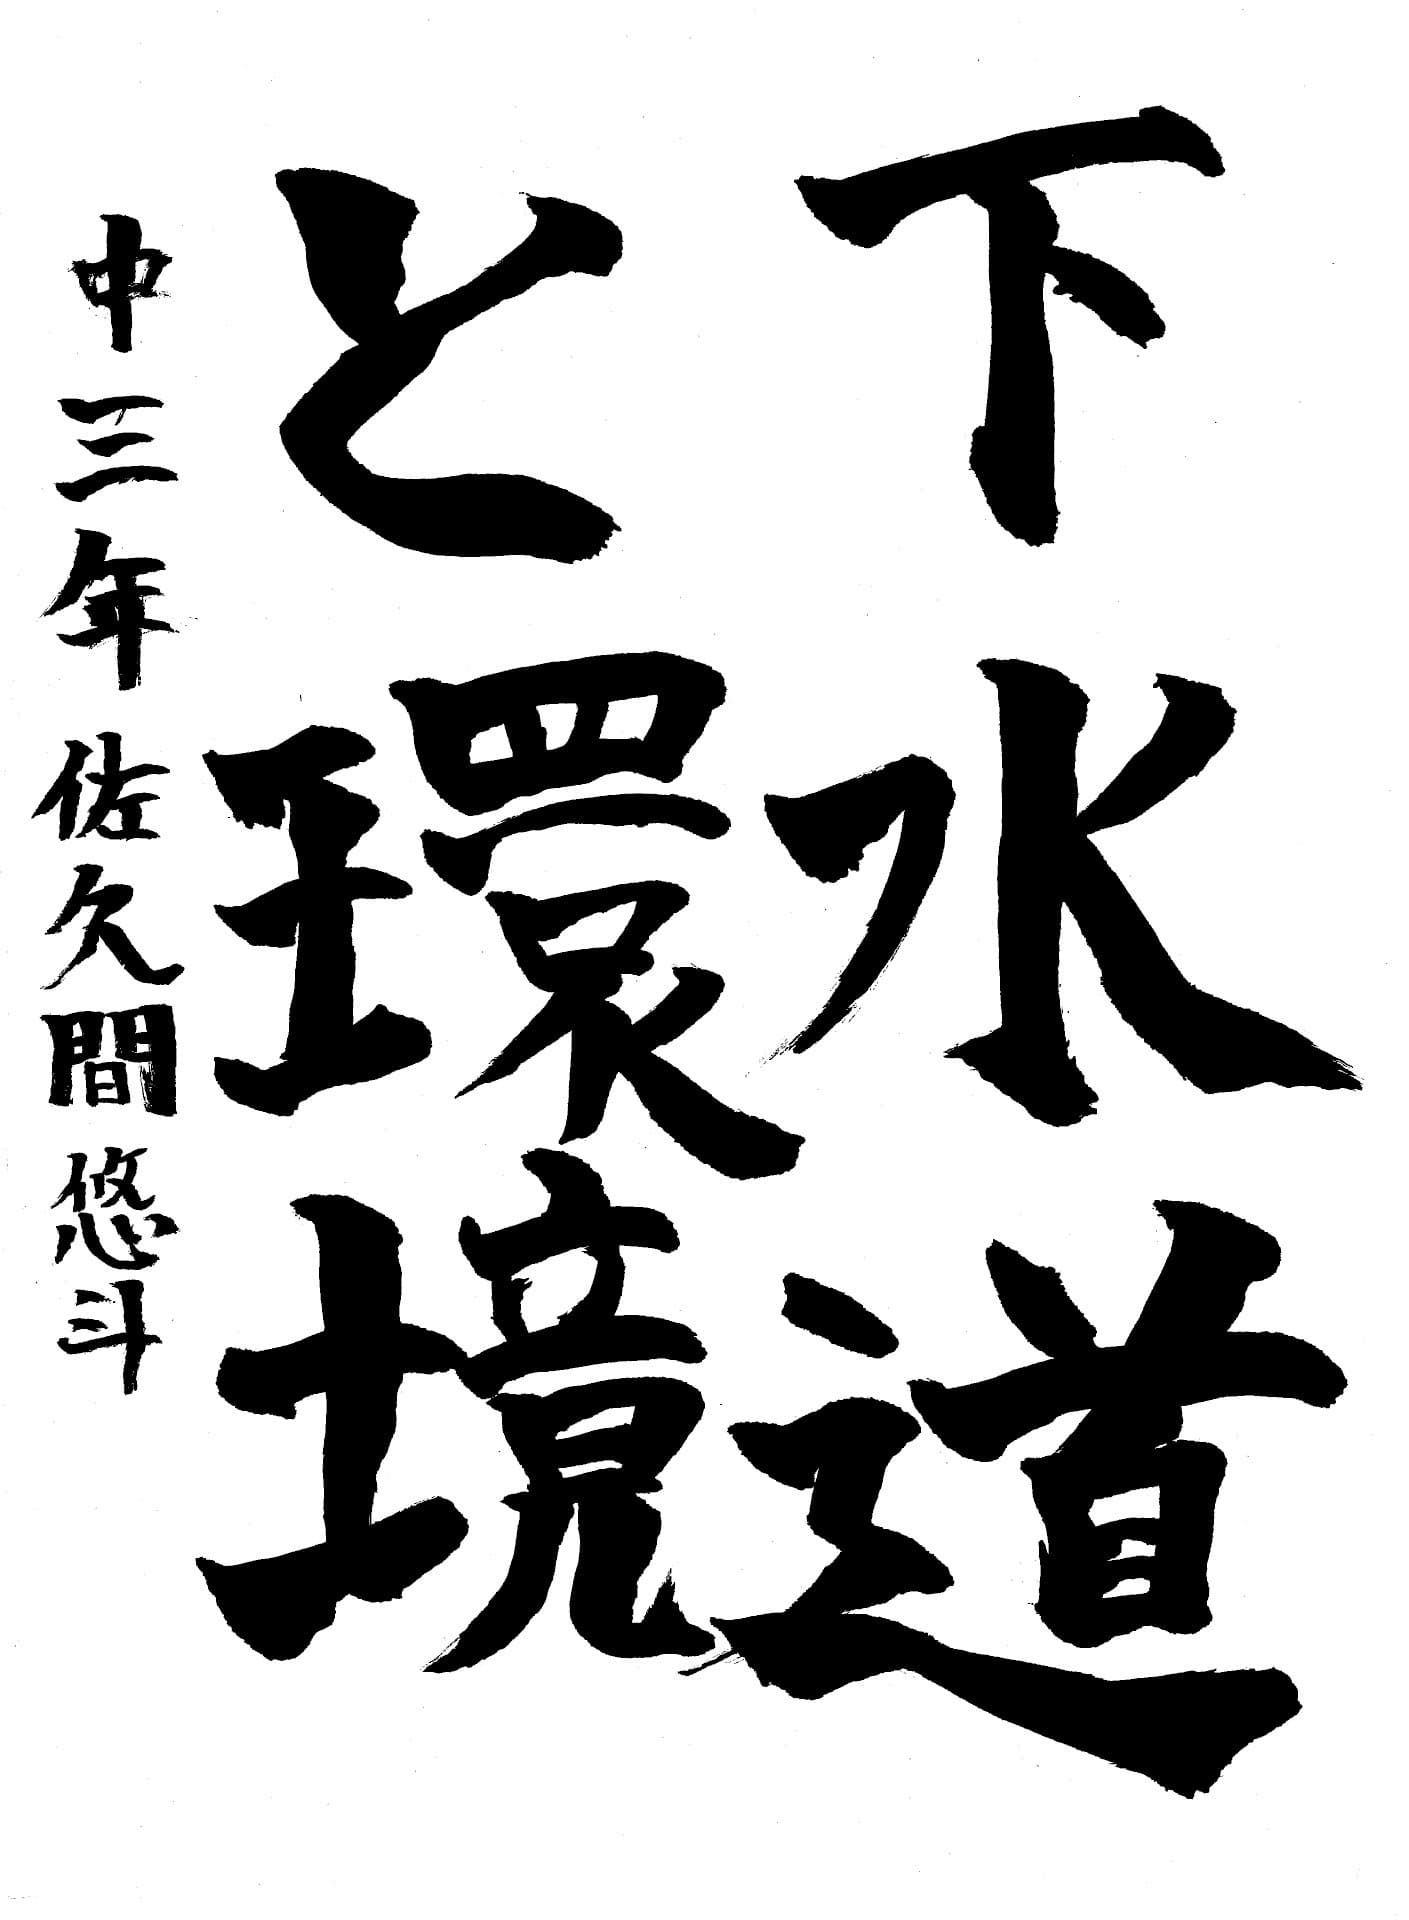 下水道
と環境
中三年 佐久間悠斗